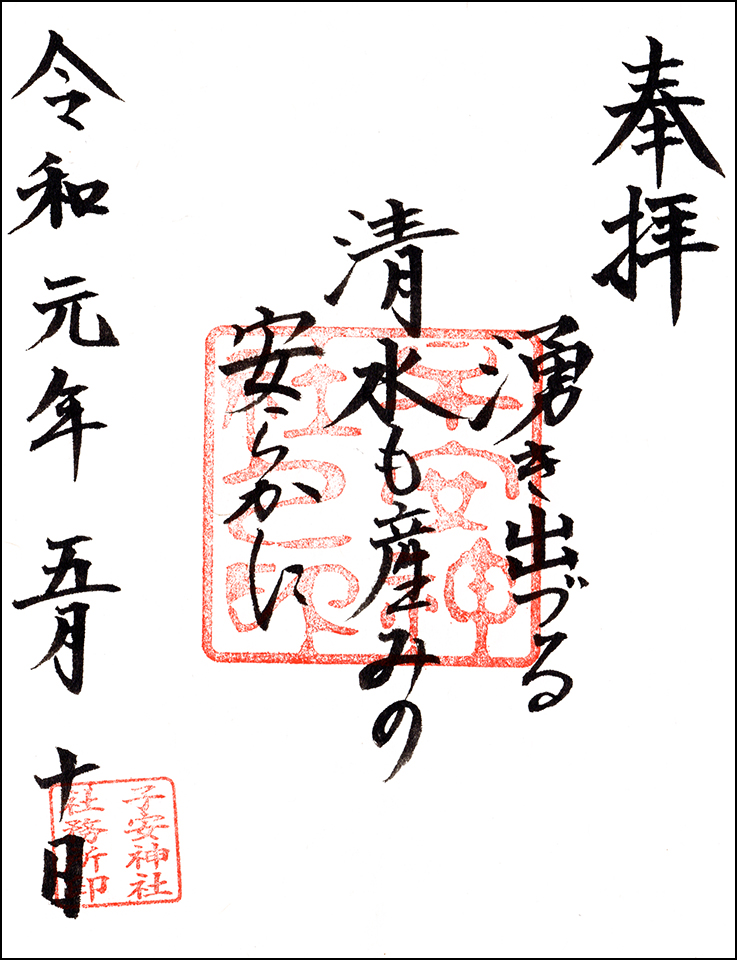 奉拝
湧き出づる
清水も産みの
安らかに
令和元年五月十日
子安神社
社務所印